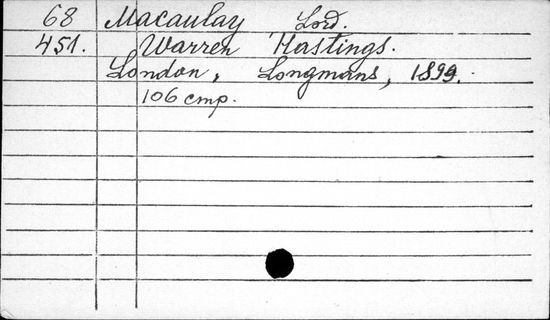 68 Macaulay Lord.
451. Warren Hastings.
London, Longmans, 1899.
106 cmp.